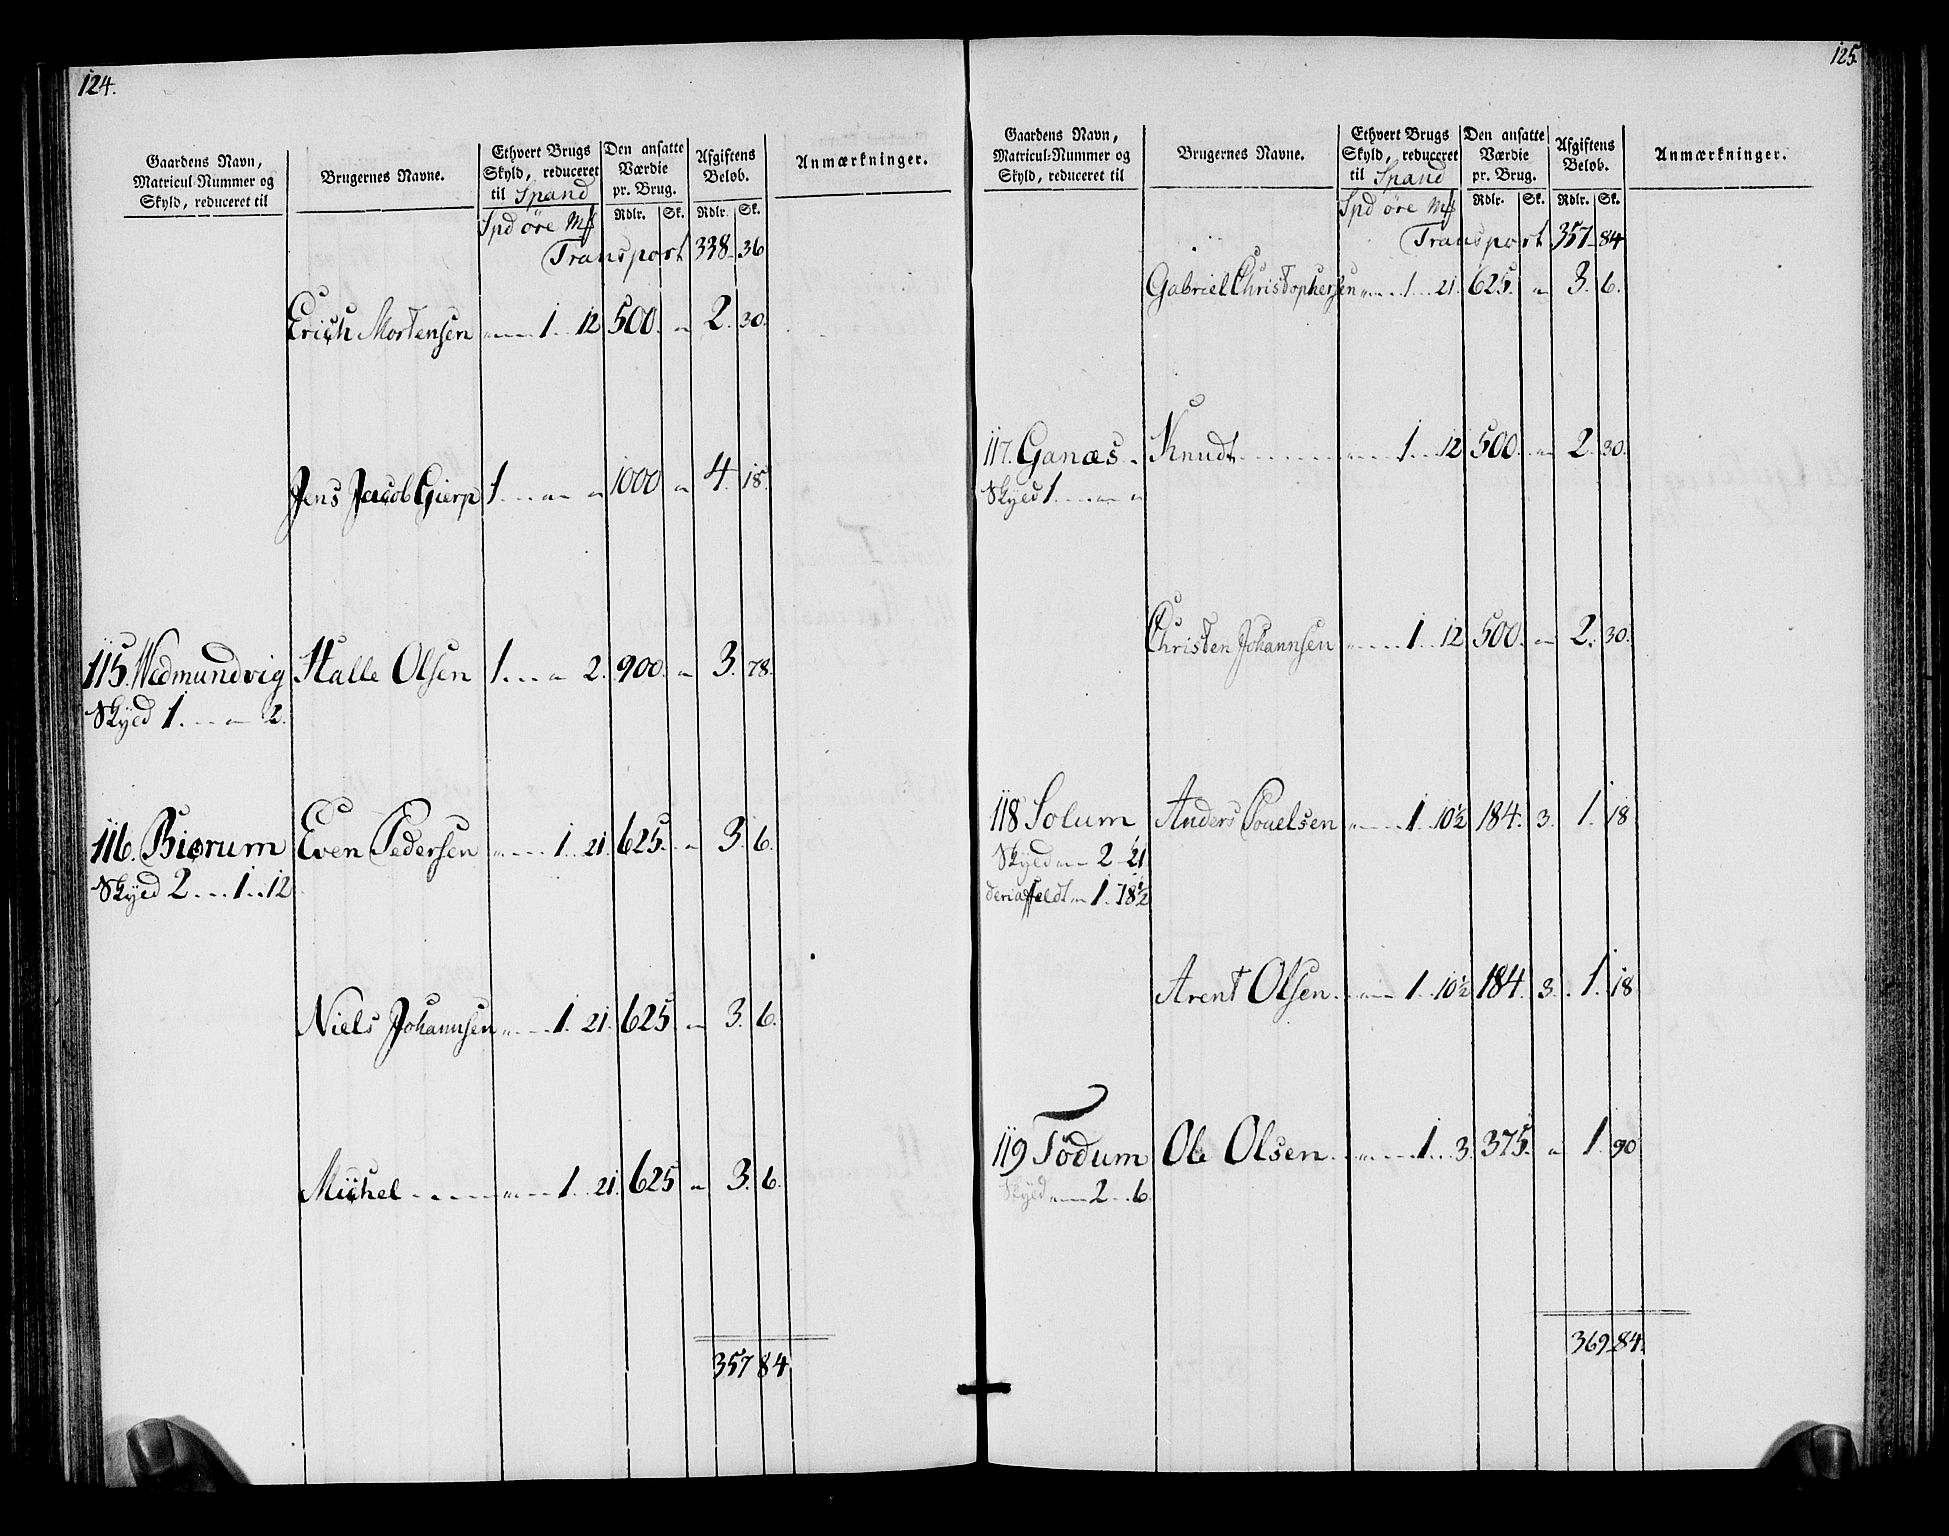 124.
Gaardens Navn, Matricul-Nummer og Skyld, reduceret til
Brugernes Navne.
Ethvert Brugs Skyld, reduceret til Spand
Den ansatte Værdie pr. Brug.
Afgiftens Beløb.
Anmærkninger.
Spd öre Mk Rdlr. Sk. Rdlr. Sk.
Transport 338 36
Erich Mortensen " 1 12 500. " 2. 30.
Jens Jacob Gierp 1 " " 1000 " 4. 18.
115. Wedmundvig Halle Olsen 1 " 2. 900. " 3. 78.
Skyld 1. " 2.
116. Biorum Even Pedersen " 1. 21. 625. " 3. 6.
Skyld 2 1 12
Niels Johannsen " 1. 21. 625. " 3. 6.
Michel " 1. 21. 625 " 3. 6.
357 84.
125.
Gaardens Navn, Matricul-Nummer og Skyld, reduceret til
Brugernes Navne.
Ethvert Brugs Skyld, reduceret til Spand
Den ansatte Værdie pr. Brug.
Afgiftens Beløb.
Anmærkninger.
Spd öre Mk Rdlr. Sk. Rdlr. Sk.
Transport 357 84
Gabriel Christophersen " 1 21. 625. " 3. 6.
117. Ganæs Knudt " 1 12 500. " 2. 30.
Skyld 1 " "
Christen Johannsen " 1. 12 500. " 2. 30.
118 Solum Anders Pouelsen " 1 10½ 184. 3. 1. 18
Skyld " 2 21
" 1. 18½
Arent Olsen " 1 10½ 184. 3. 1. 18
119 Tödum Ole Olsen " 1. 3. 375. " 1. 90
Skyld " 2 6.
369 84.